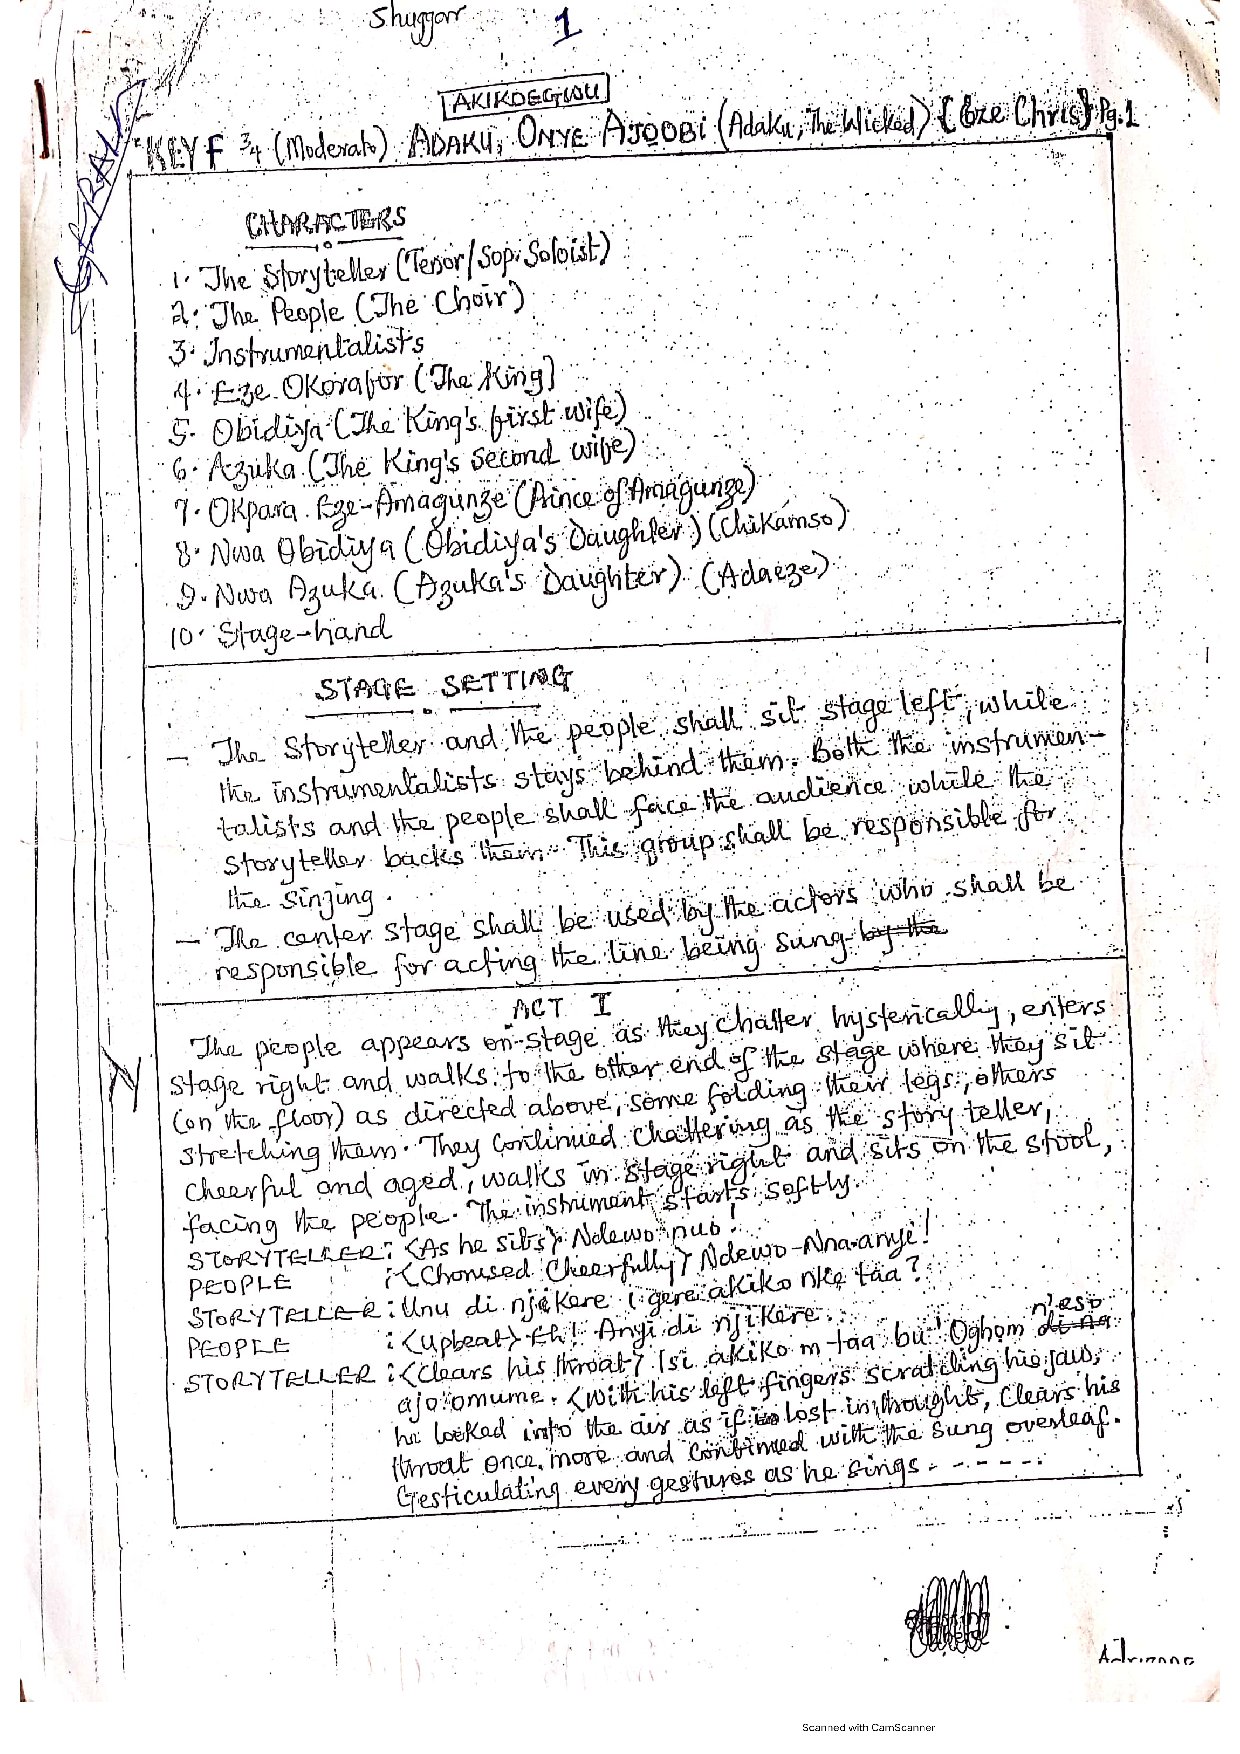 Shuggar 1
AKIKOEGWU
KEY F 3/4 (Moderato) ADAKU, ONYE AJOOBI (Adaku, The Wicked) {Eze Chris} Pg.1
CHARACTERS
1. The Storyteller (Tenor/Sop. Soloist)
2. The People (The Choir)
3. Instrumentalists
4. Eze Okorafor (The King)
5. Obidiya (The King's first wife)
6. Azuka (The King's Second wife)
7. Okpara Eze-Amagunze (Prince of Amagunze)
8. Nwa Obidiya (Obidiya's Daughter) (Chikamso)
9. Nwa Azuka (Azuka's Daughter) (Adaeze)
10. Stage-hand
STAGE SETTING
- The Storyteller and the people shall sit stage left, while
the instrumentalists stays behind them. Both the instrumen-
talists and the people shall face the audience while the
storyteller backs them. This group shall be responsible for
the singing.
- The center stage shall be used by the actors who shall be
responsible for acting the line being sung by the
ACT I
The people appears on-stage as they chatter hysterically, enters
stage right and walks to the other end of the stage where they sit
(on the floor) as directed above, some folding their legs, others
stretching them. They continued chattering as the story teller,
cheerful and aged, walks in stage right and sits on the stool,
facing the people. The instrument starts softly.
STORYTELLER: <As he sits> Ndewo nuo!
PEOPLE : <Chorused cheerfully> Ndewo-Nna-anyi!
STORYTELLER: Unu di njikere i gere akiko nke taa?
PEOPLE : <Upbeat> Eh! Anyi di njikere.
n'eso
STORYTELLER: <Clears his throat> Isi akiko m taa bu 'Oghom di na
ajo omume. <With his left fingers scratching his jaw,
he looked into the air as if lost in thought, Clears his
throat once more and continued with the sung overleaf.
Gesticulating every gestures as he sings. - - - - -
Scanned with CamScanner